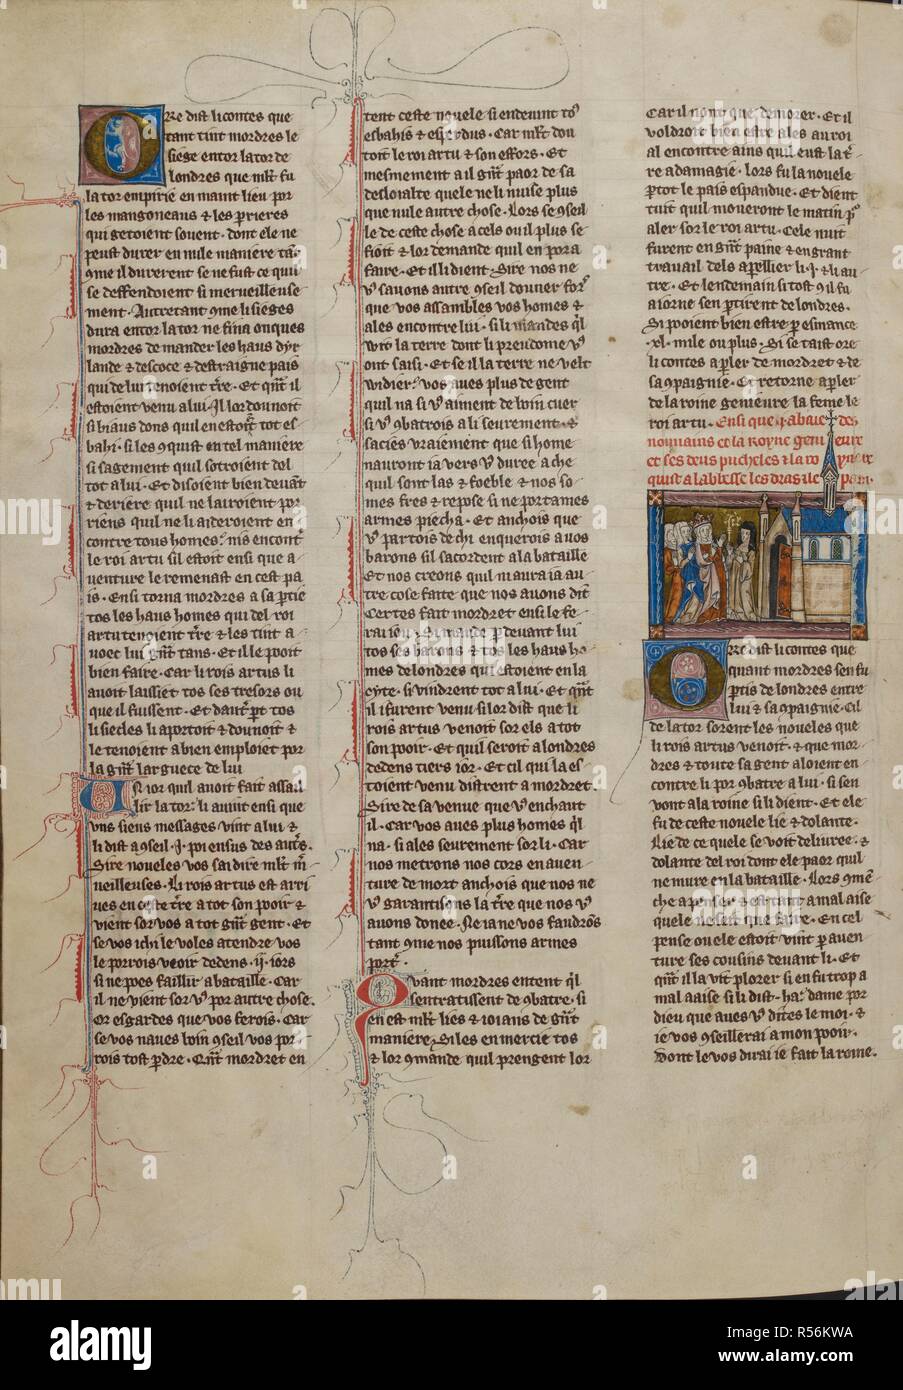 Re dist li contes que
tant tint mordres le
siege entor la tor de
londres que mlt fu
la tor empirie en maint lieu por
les mangoneaus & les prieres
qui getoient souent. dont ele ne
peust durer en nule maniere tāt
9me il durerent se ne fust ce qui
se deffendoient si merueilleuse
ment. Autretant 9me li sieges
dura entor la tor ne fina onques
mordres de mander les haus dyr
lande & descoce & destraigne pais
qui de lui tenoient tr̄e. Et qn̄t il
estoient venu a lui. Il lor donnoit
si biaus dons quil en estoīt tot es
bahi. si les 9quist en tel maniere
si sagement quil sotroient del
tot a lui. Et disoient bien deuāt
& deriere quil ne lairoient por
riens quil ne li aideroient en
contre tous homes. nis encont
le roi artu sil estoit ensi que a
uenture le remenast en cest pa
is. Ensi torna mordres a sa p̄tie
tos les haus homes qui del roi
artu tenoient tr̄e & les tint a
uoec lui gn̄t tans. Et il le pooit
bien faire. Car li rois artus li
auoit laissiet tos ses tresors ou
que il fuissent. Et daut̄ p̄t tos
li siecles li aportoit & donnoit &
le tenoient a bien emploiet por
la gn̄t larguece de lui
j ior quil auoit fait assa
lir la tor. li auint ensi que
vns siens messages vint a lui &
li dist a 9seil. j poi ensus des aut̄s.
Sire noueles vos sai dire mlt m̄
ueilleuses. Li rois artus est arri
ues en ceste tr̄e a tot son pooir &
vient sor vos a tot gn̄t gent. Et
se vos ichi le voles atendre vos
le porrois veoir dedens .ij. iors
si ne poes faillir a bataille. Car
il ne vient sor v9 por autre chose.
Or esgardes que vos ferois. Car
se vos naues boin 9seil vos por
rois tost p̄dre. Qn̄t mordret en
tent ceste nouele si en deuint to9
esbahis & esp̄dus. Car mlt dou
toit le roi artu & son effors. Et
mesmement a il gn̄t paor de sa
desloialte quele ne li nuise plus
que nule autre chose. Lors se 9seil
le de ceste chose a cels ou il plus se
fioit & lor demande quil en pora
faire. Et il li dient Sire nos ne
v9 sauons autre 9seil donner fors
que vos assambles vos homes &
ales encontre lui. si li mandes ql
wit la terre dont li preudome v9
ont saisi. Et se il la terre ne velt
widier. vos aues plus de gent
quil na si v9 aiment de boin cuer
si v9 9batrois a li seurement. &
sacies vraiement que si home
nauront ia vers v9 duree a che
quil sont las & foeble & nos so
mes fres & repose si ne portames
armes piecha. Et anchois que
v9 partois de chi enquerois a vos
barons sil sacordent a la bataille
Et nos creons quil ni aura ia au
tre cose faite que nos auons dit
Certes fait mordret ensi le fe
rai iou. Si manda p̄ deuant lui
tos ses barons & tos les haus ho
mes de londres qui estoient en la
cyte. si vindrent tot a lui. Et qn̄t
il i furent venu si lor dist que li
rois artus venoit sor els a tot
son pooir. Et quil seroit a londres
dedens tiers ior. Et cil qui la es
toient venu distrent a mordret.
Sire de sa venue que v9 en chaut
il. Car vos aues plus homes ql
na. si ales seurement sor li. Car
nos metrons nos cors en auen
ture de mort anchois que nos ne
v9 garantisons la tr̄e que nos v9
auons donee. Ne ia ne vos faudrōs
tant 9me nos puissons armes
port̄.
Quant mordres entent ql
sentratissent de 9batre. si
en est mlt lies & ioians de gn̄t
maniere. Si les en mercie tos
& lor 9mande quil prengent lor
Car il nont que demorer. Et il
voldroit bien estre ales au roi
al encontre ains quil eust la t̄
re adamagie. Lors fu la nouele
p̄tot le pais espandue. Et dient
tuit quil moueront le matin p̄
aler sor le roi artu. Cele nuit
furent en gn̄t paine & en grant
trauail dels ap̄ellier li .j. & li au
tre. Et lendemain si tost 9 il fu
aiorne sen p̄tirent de londres.
Si pooient bien estre p̄ esmance
.xl. mile ou plus. Si se taist ore
li contes a p̄ler de mordret & de
sa 9paignie. Et retorne a p̄ler
de la roine genieure la feme le
roi artu. Ensi que labaie des
nonnains et la royne genieure
et ses deus pucheles & la royne re
quist a labesse les dras
Re dist li contes que
quant mordres sen fu
p̄tis de londres entre
lui & sa 9paignie. Cil
de la tor sorent les noueles que
li rois artus venoit. & que mor
dres & toute sa gent aloient en
contre li por 9batre a lui. si sen
vont a la roine si li dient. Et ele
fu de ceste nouele lie & dolante.
Lie de ce quele se voit deliuree. &
dolante del roi dont ele paor quil
ne mure en la bataille. Lors 9men
che a penser & est tant a malaise
quele ne set que faire. En cel
pense ou ele estoit vint p̄ auen
ture ses cousins deuant li. Et
qn̄t il la vit plorer si en fu trop a
mal aaise si li dist. ha. dame por
dieu que aues v9 dites le moi. &
ie vos 9seillerai a mon pooir.
Dont le vos dirai ie fait la roine.
alamy
a
alamy
Image ID: R56KWA
www.alamy.com